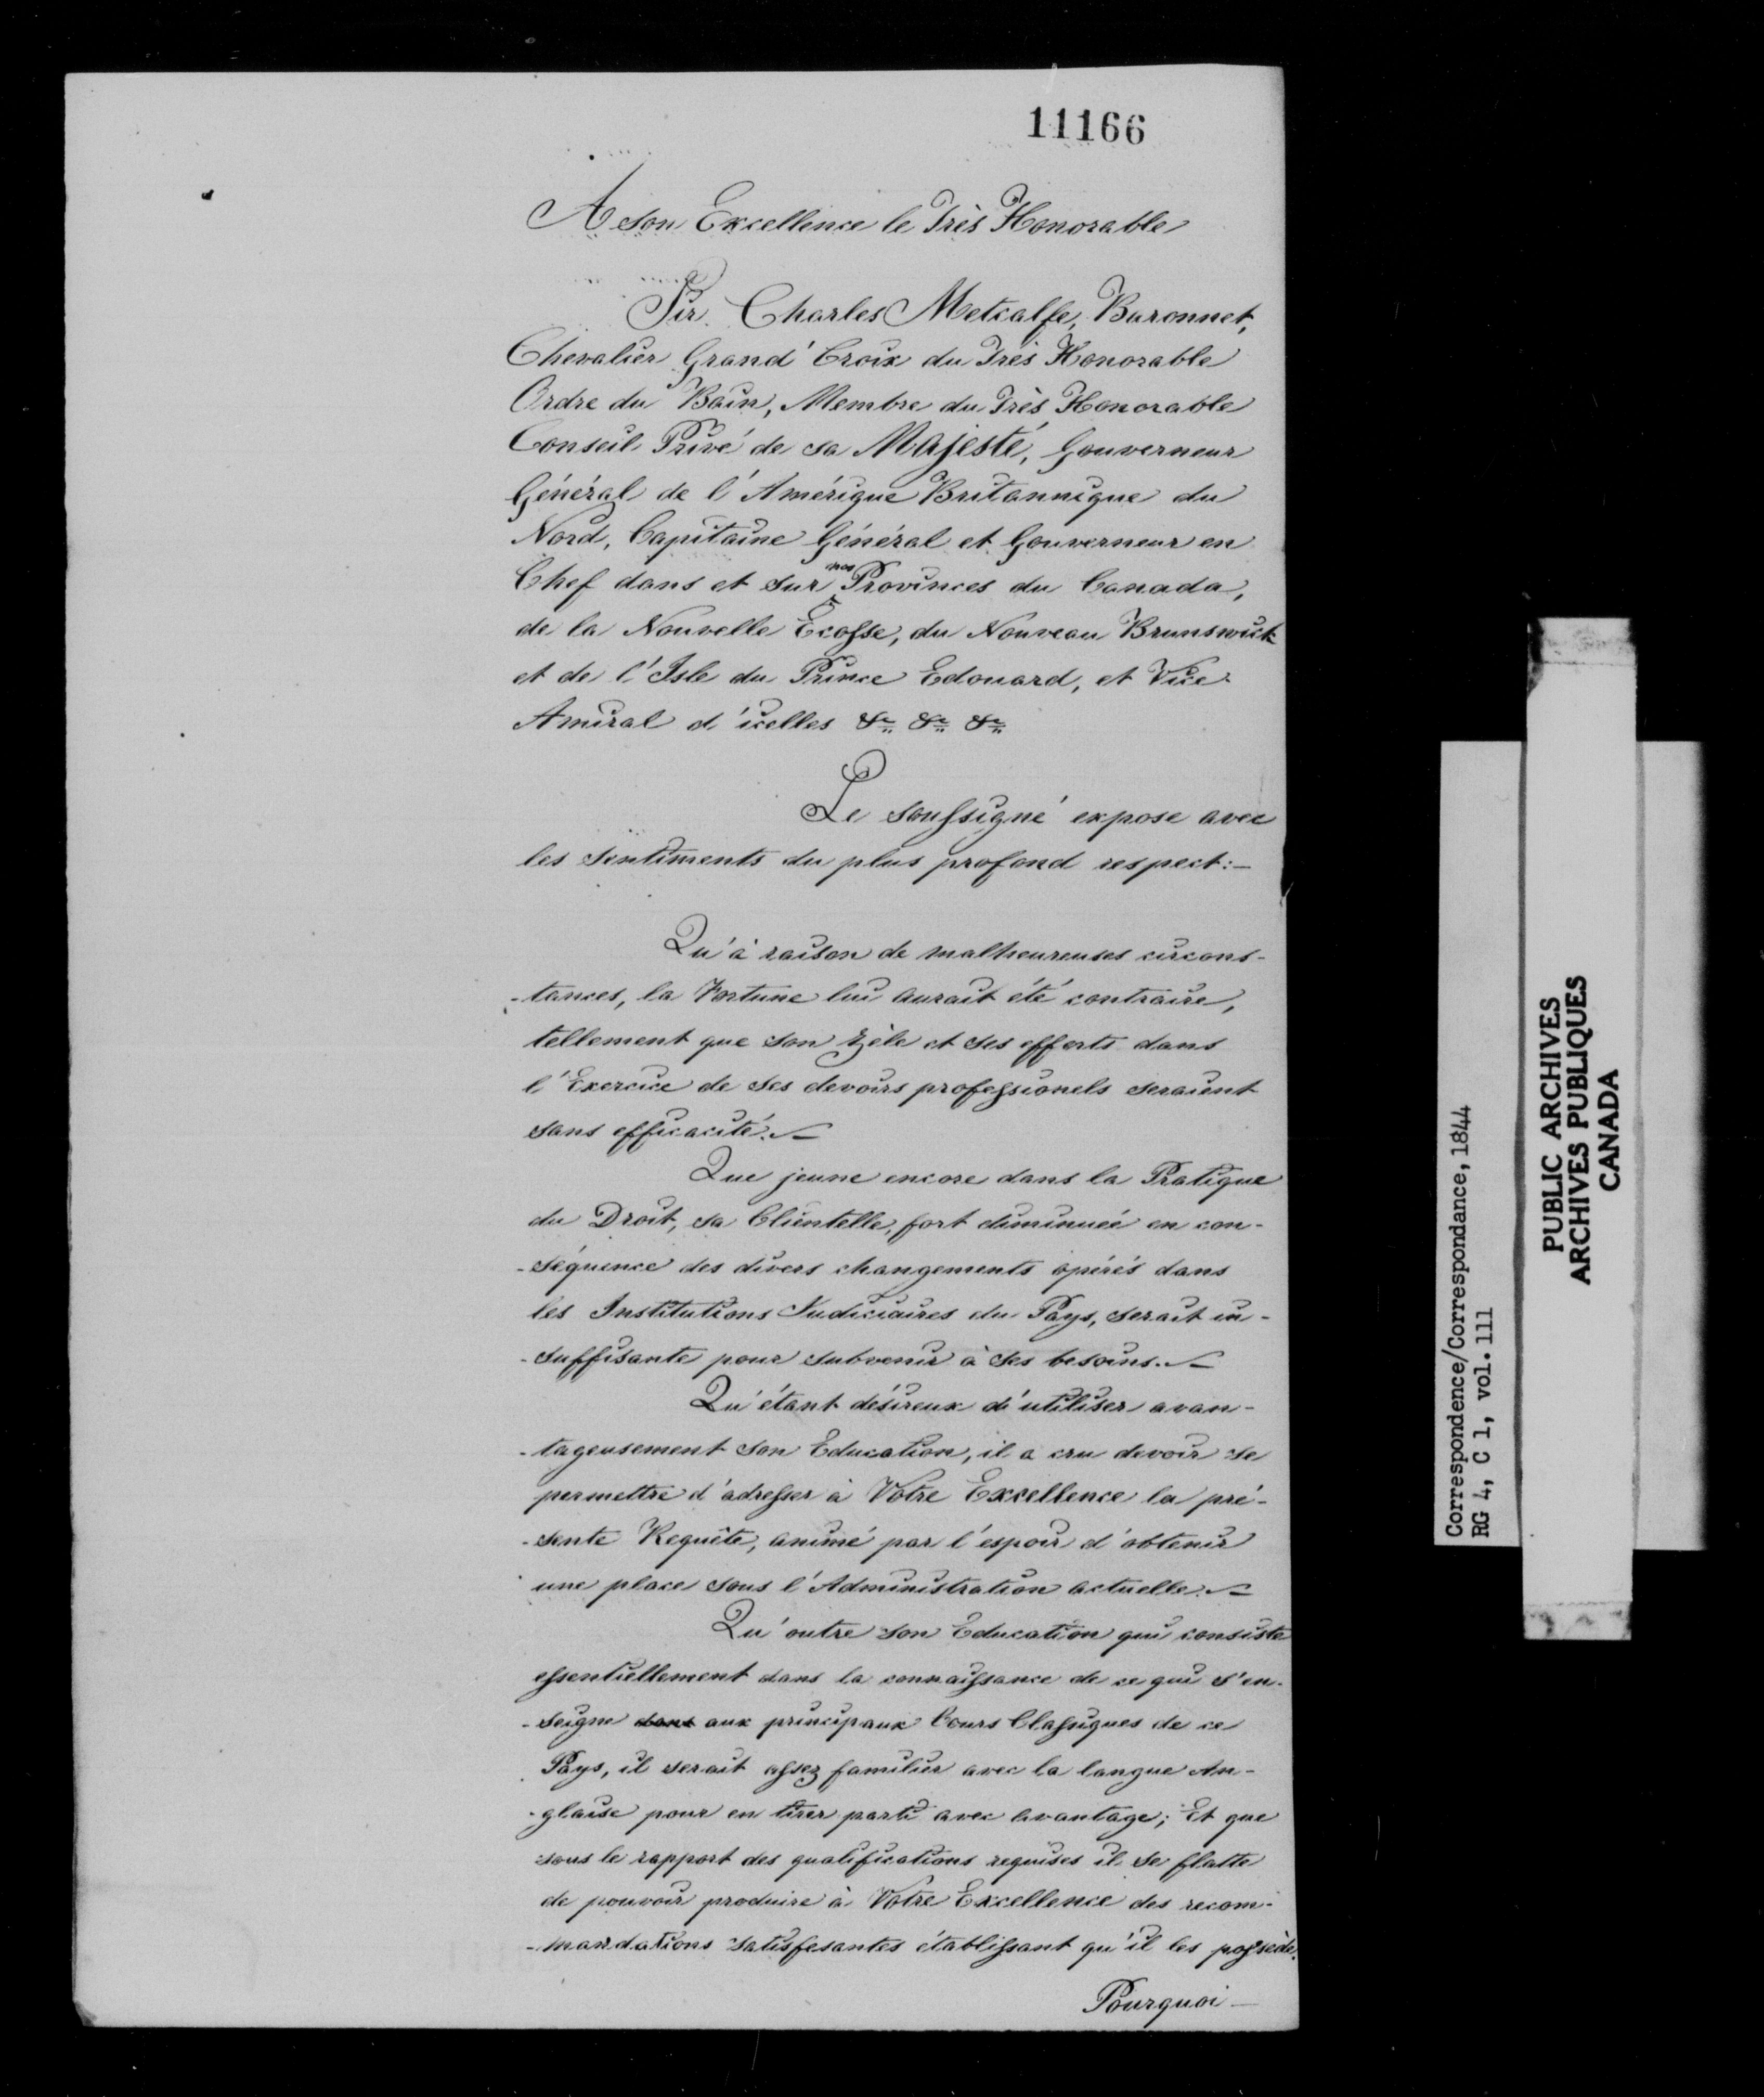 11166
A son Excellence le Très Honorable
Sir Charles Metcalfe, Baronnet,
Chevalier Grand' Croix du Très Honorable
Ordre du Bain, Membre du Très Honorable
Conseil Privé de sa Majesté, Gouverneur
Général de l'Amérique Britannique du
Nord, Capitaine Général et Gouverneur en
Chef dans et sur nos Provinces du Canada,
de la Nouvelle Ecosse, du Nouveau Brunswick
et de l'Isle du Prince Edouard, et Vice-
Amiral d'icelles &c &c &c
Le soussigné expose avec
les sentiments du plus profond respect:—
Qu'à raison de malheureuses circons-
-tances, la Fortune lui aurait été contraire,
tellement que son zèle et ses efforts dans
l'Exercice de ses devoirs professionels seraient
sans efficacité.—
Que jeune encore dans la Pratique
du Droit, sa Clientelle, fort diminuée en con-
-séquence des divers changements opérés dans
les Institutions Judiciaires du Pays, serait in-
-suffisante pour subvenir à ses besoins.—
Qu'étant désireux d'utiliser avan-
-tageusement son Education, il a cru devoir se
permettre d'adresser à Votre Excellence la pré-
-sente Requête, animé par l'espoir d'obtenir
une place sous l'Administration actuelle.—
Qu'outre son Education qui consiste
essentiellement dans la connaissance de ce qui s'en-
-seigne dans aux principaux Cours Classiques de ce
Pays, il serait assez familier avec la langue An-
-glaise pour en tirer parti avec avantage; Et que
sous le rapport des qualifications requises il se flatte
de pouvoir produire à Votre Excellence des recom-
-mandations satisfesantes établissant qu'il les possède.
Pourquoi—
Correspondence/Correspondance, 1844
RG 4, C 1, vol. 111
PUBLIC ARCHIVES
ARCHIVES PUBLIQUES
CANADA